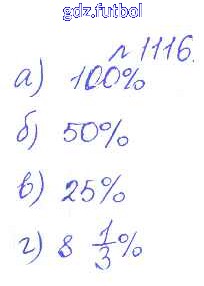 gdz.futbol
№ 1116.
а) 100%
б) 50%
в) 25%
г) 8 1/3 %